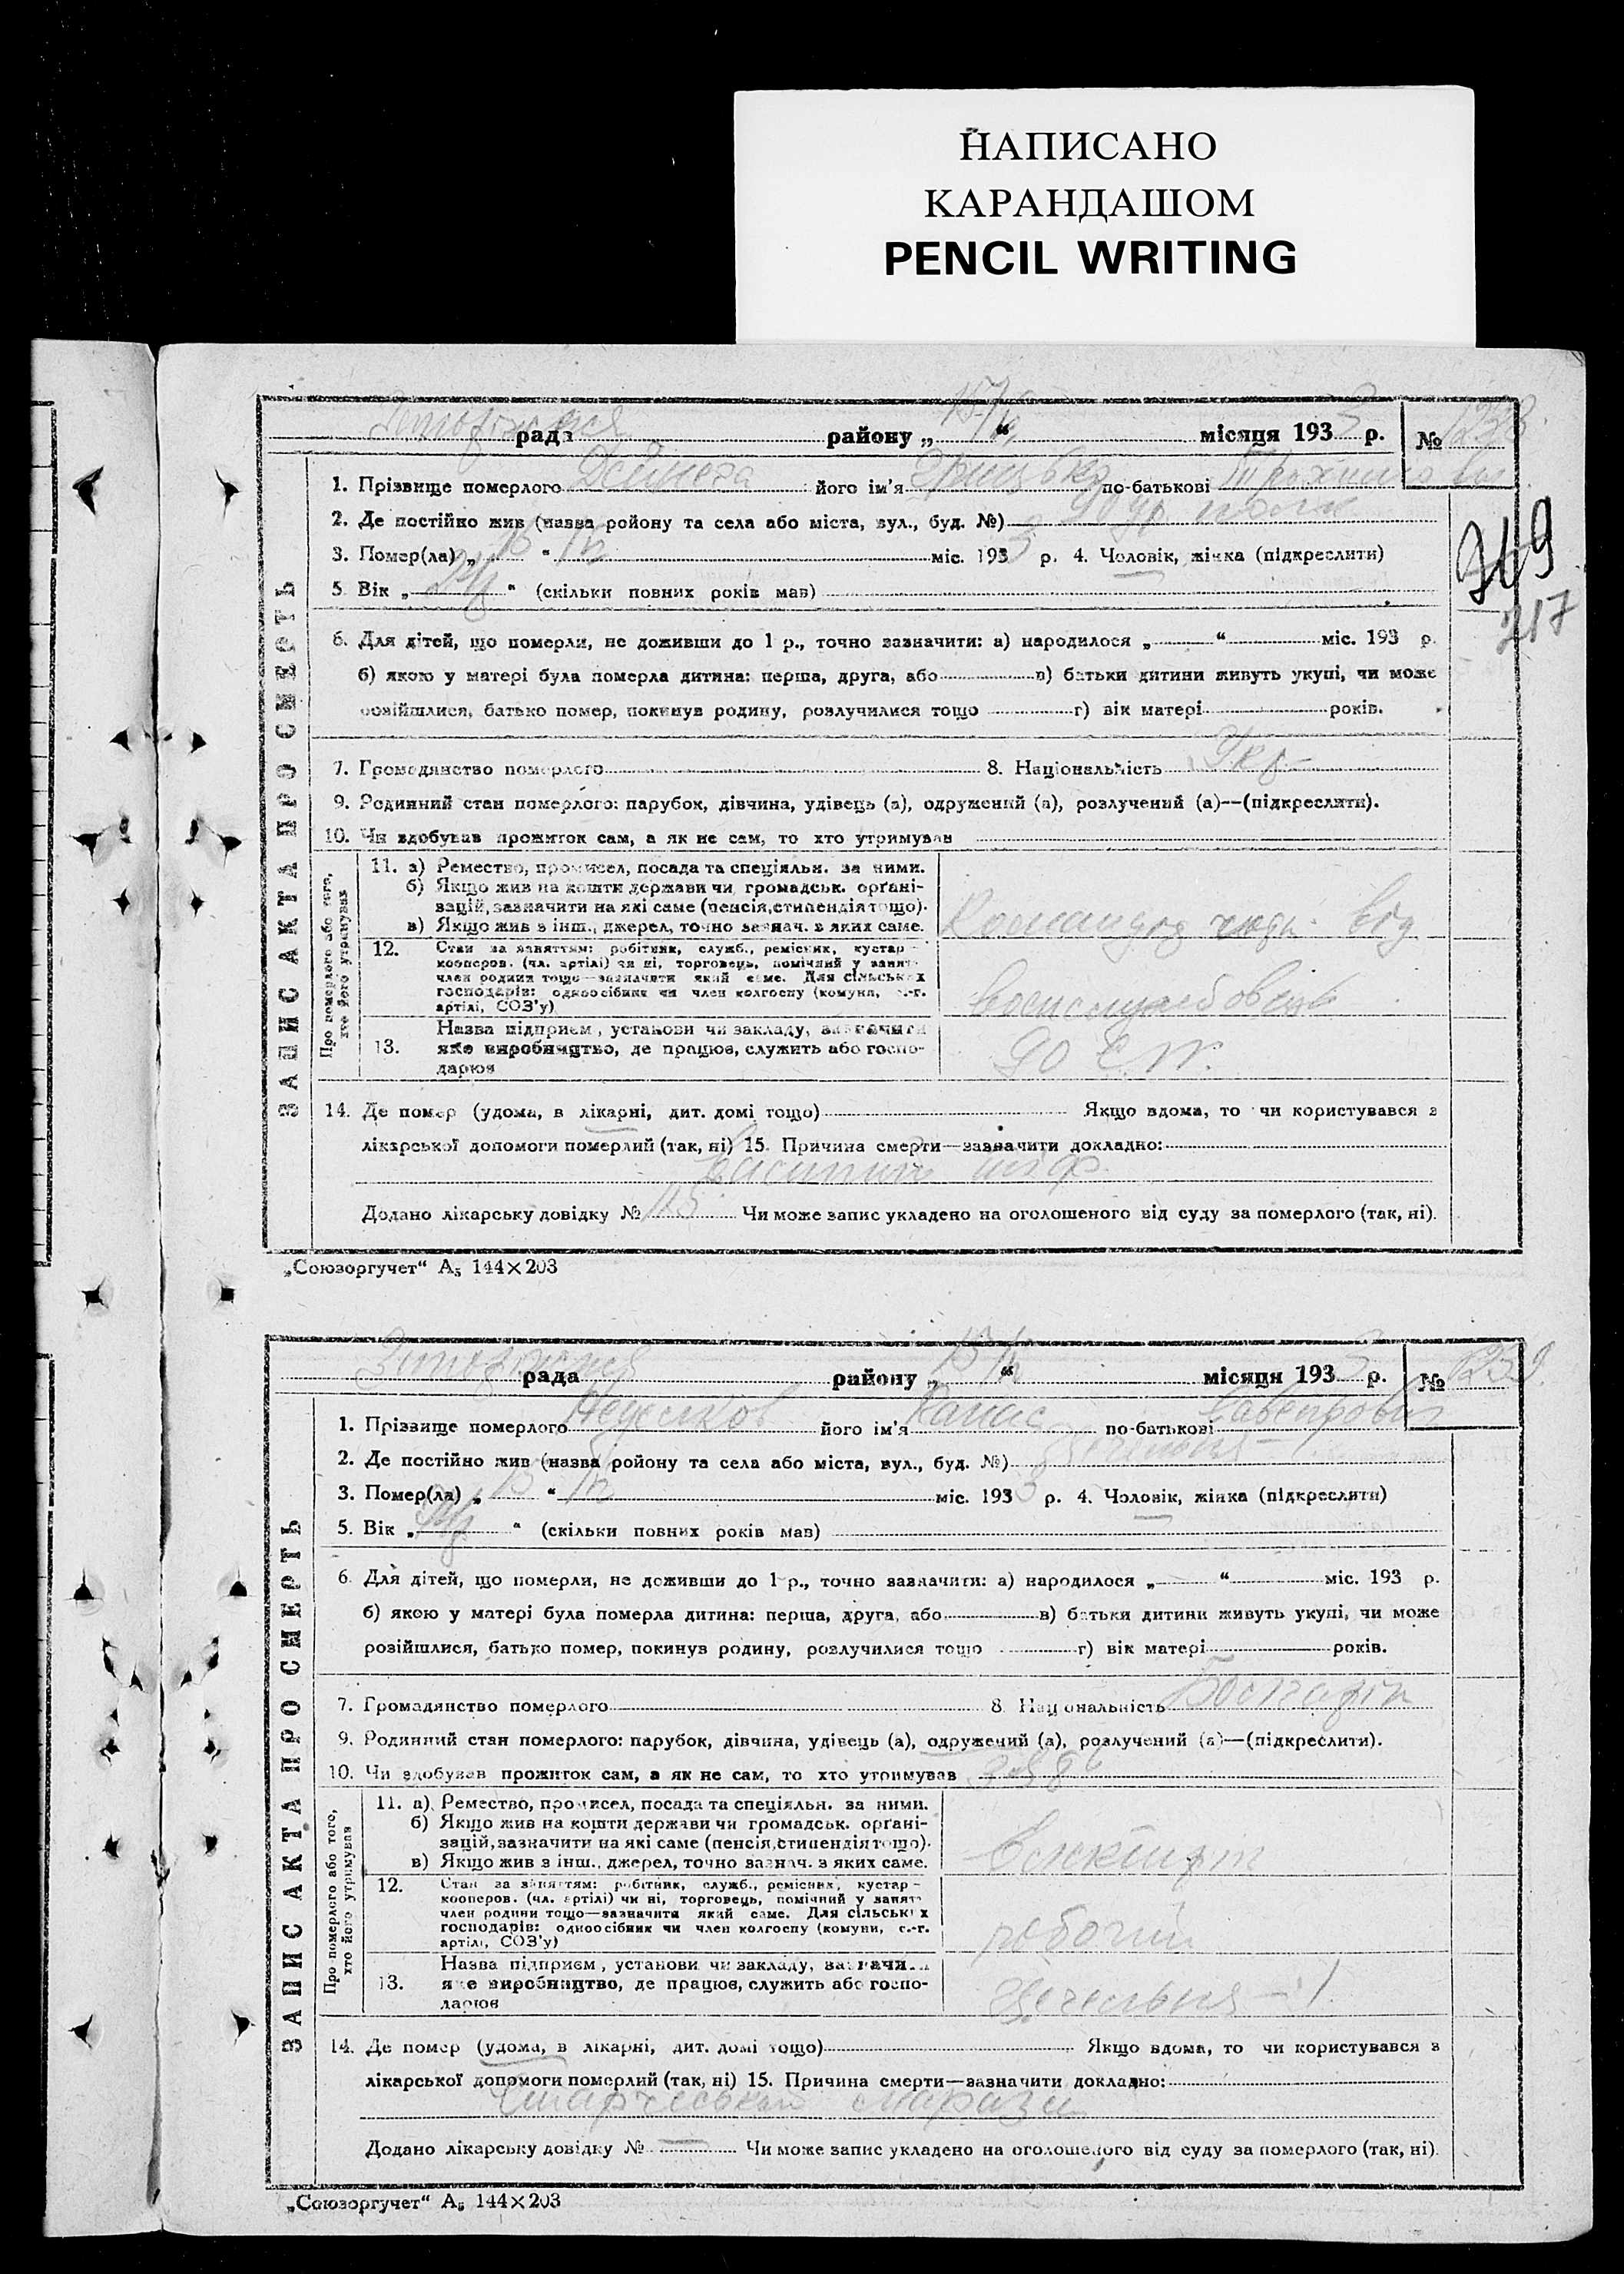 НАПИСАНО
КАРАНДАШОМ
PENCIL WRITING
рада району „ “ місяця 1933 р. № 1238.
1. Прізвище померлого Дейнега його ім'я Грицько по-батькові
2. Де постійно жив (назва ройону та села або міста, вул., буд. №) 90
3. Помер(ла) „ 15 “ міс. 1933 р. 4. Чоловік, жінка (підкреслити)
5. Вік „ “ (скільки повних років мав)
6. Для дітей, що померли, не доживши до 1 р., точно зазначити: а) народилося „ “ міс. 193 р.
б) якою у матері була померла дитина: перша, друга, або в) батьки дитини живуть укупі, чи може
розійшлися, батько помер, покинув родину, розлучилися тощо г) вік матері років.
7. Громадянство померлого 8. Національність Укр
9. Родинний стан померлого: парубок, дівчина, удівець (а), одружений (а), розлучений (а)—(підкреслити).
10. Чи здобував прожиток сам, а як не сам, то хто утримував
11. а) Ремество, промисел, посада та спеціяльн. за ними.
б) Якщо жив на кошти держави чи громадськ. орґані-
зацій, зазначити на які саме (пенсія, стипендія тощо).
в) Якщо жив з інш., джерел, точно зазнач. з яких саме.
Командир від
12. Стан за заняттям: робітник, служб., ремісник, кустар-
кооперов. (чл. артілі) чи ні, торговець, помічний у занят.
член родини тощо—зазначити який саме. Для сільських
господарів: одноосібник чи член колгоспу (комуни, с.-г.
артілі, СОЗ'у)
13. Назва підприєм, установи чи закладу, зазначити
яке виробництво, де працює, служить або госпо-
дарює
90
14. Де помер (удома, в лікарні, дит. домі тощо) Якщо вдома, то чи користувався з
лікарської допомоги померлий (так, ні) 15. Причина смерти—зазначити докладно:
тиф
Додано лікарську довідку № 115 Чи може запис укладено на оголошеного від суду за померлого (так, ні).
ЗАПИС АКТА ПРО СМЕРТЬ
Про померлого або того,
хто його утримував
749
717
„Союзоргучет“ А₅ 144×203
рада району „ “ місяця 1933 р. № 1239.
1. Прізвище померлого його ім'я Панас по-батькові
2. Де постійно жив (назва ройону та села або міста, вул., буд. №)
3. Помер(ла) „ 15 “ міс. 1933 р. 4. Чоловік, жінка (підкреслити)
5. Вік „ “ (скільки повних років мав)
6. Для дітей, що померли, не доживши до 1 р., точно зазначити: а) народилося „ “ міс. 193 р.
б) якою у матері була померла дитина: перша, друга, або в) батьки дитини живуть укупі, чи може
розійшлися, батько помер, покинув родину, розлучилися тощо г) вік матері років.
7. Громадянство померлого 8. Національність
9. Родинний стан померлого: парубок, дівчина, удівець (а), одружений (а), розлучений (а)—(підкреслити).
10. Чи здобував прожиток сам, а як не сам, то хто утримував
11. а) Ремество, промисел, посада та спеціяльн. за ними.
б) Якщо жив на кошти держави чи громадськ. орґані-
зацій, зазначити на які саме (пенсія, стипендія тощо).
в) Якщо жив з інш., джерел, точно зазнач. з яких саме.
12. Стан за заняттям: робітник, служб., ремісник, кустар-
кооперов. (чл. артілі) чи ні, торговець, помічний у занят.
член родини тощо—зазначити який саме. Для сільських
господарів: одноосібник чи член колгоспу (комуни, с.-г.
артілі, СОЗ'у)
робочий
13. Назва підприєм, установи чи закладу, зазначи
яке виробництво, де працює, служить або госпо-
дарює
14. Де помер (удома, в лікарні, дит. домі тощо) Якщо вдома, то чи користувався з
лікарської допомоги померлий (так, ні) 15. Причина смерти—зазначити докладно:
маразм
Додано лікарську довідку № — Чи може запис укладено на оголошеного від суду за померлого (так, ні)
ЗАПИС АКТА ПРО СМЕРТЬ
Про померлого або того,
хто його утримував
„Союзоргучет“ А₅ 144×203